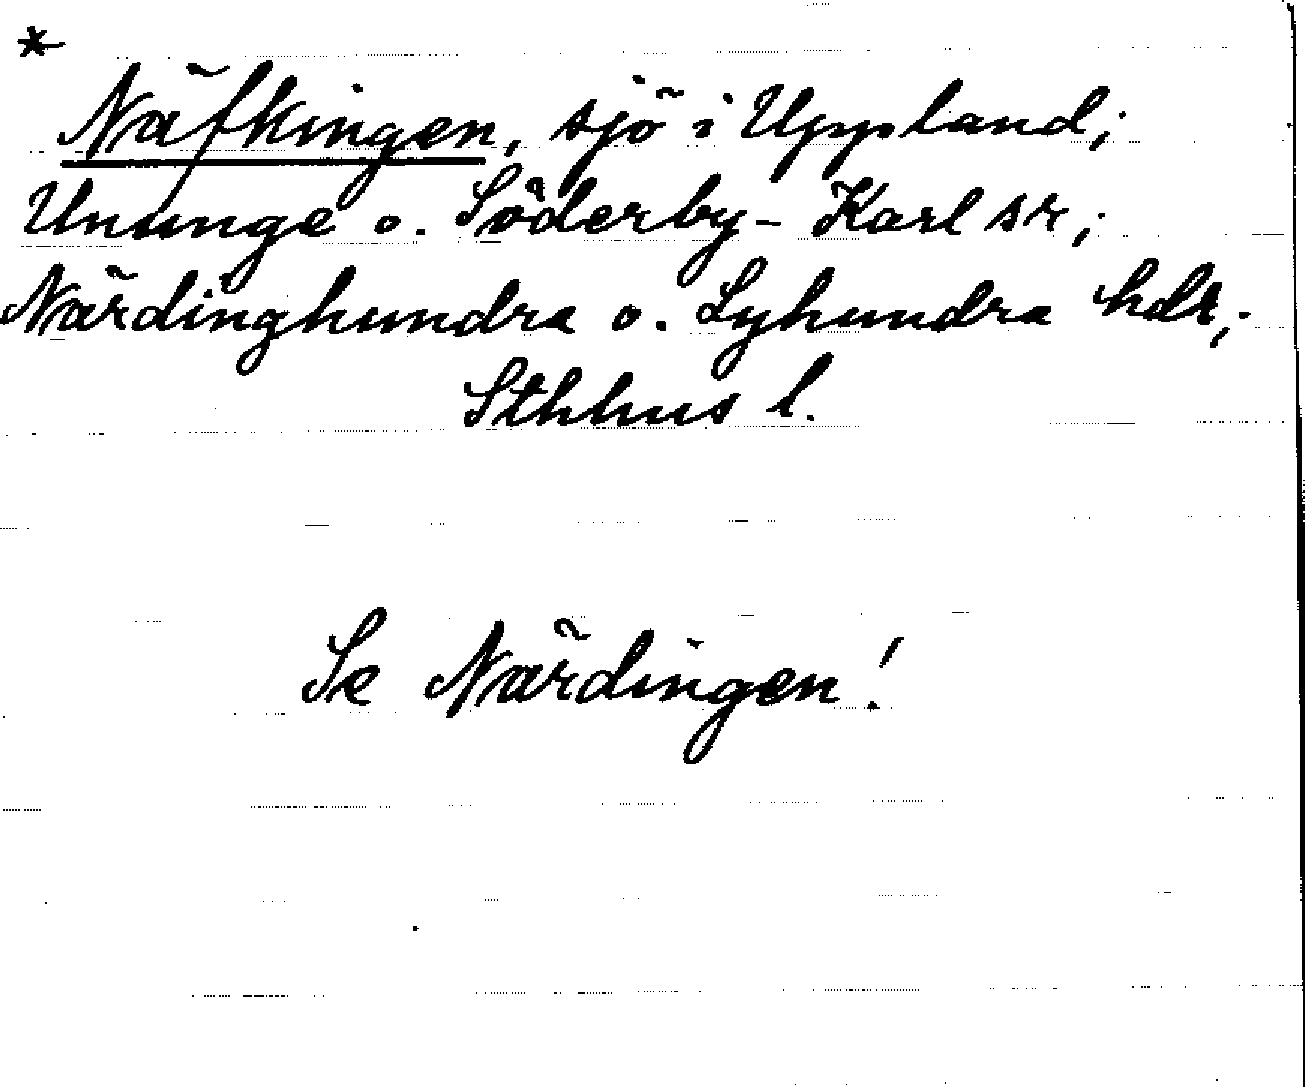 *
Näfkingen, sjö i Uppland;
Ununge o. Söderby-Karl sr;
Närdinghundra o. Lyhundra hdr;
Sthlms l.
Se Närdingen!